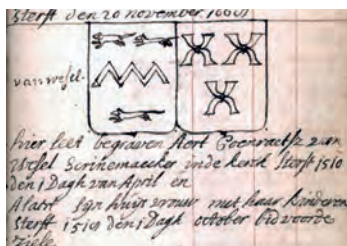 Sterft den 20 november 1660
van wesel.
hier leet begraven Aert Coenraetsz van
Wesel Scrinemaecker inde kerck Sterft 1510
den 1 Dagh van April en
Sijn huijsvrouw met haar kinderen
Sterft 1519 den 1 Dagh october bid voorde
Ziele